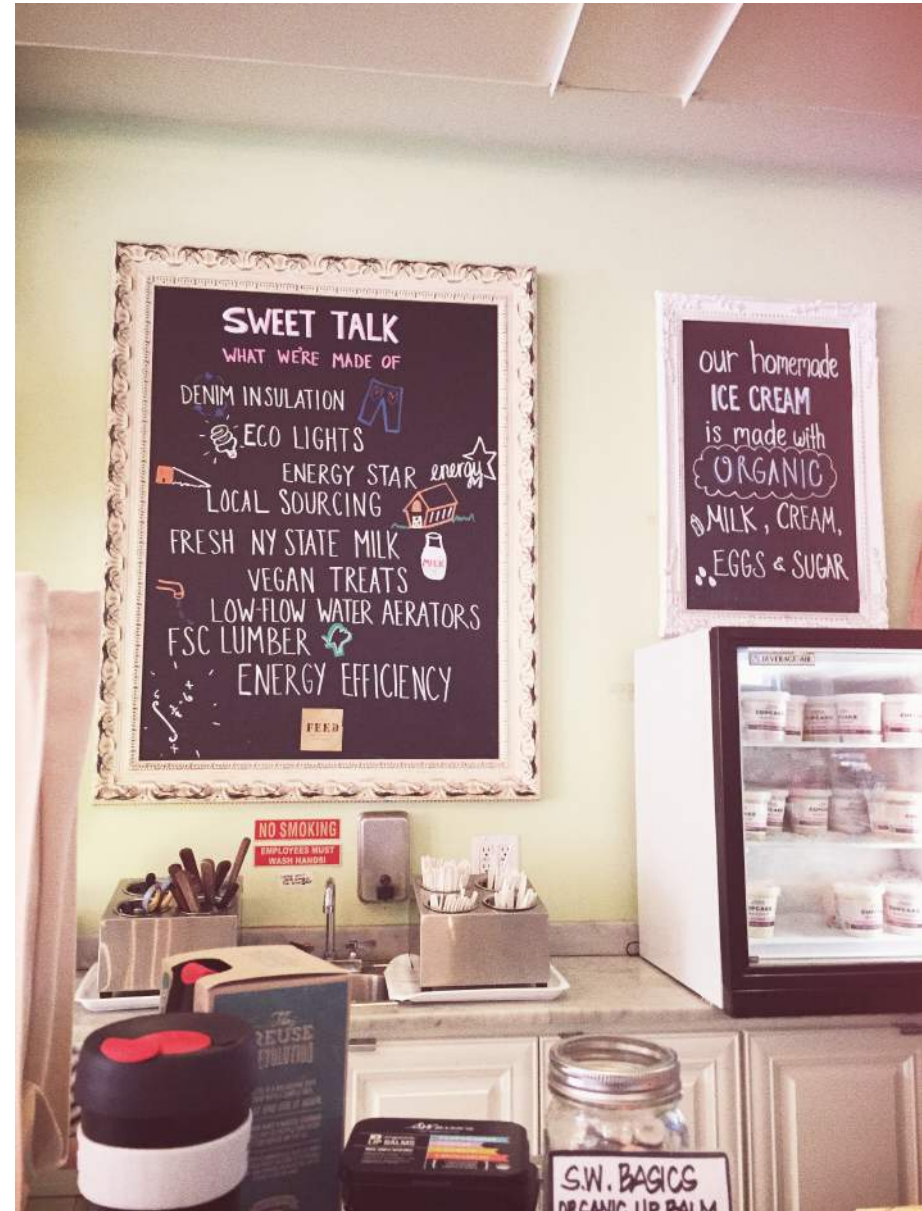 SWEET TALK
WHAT WE'RE MADE OF
DENIM INSULATION
ECO LIGHTS
ENERGY STAR energy
LOCAL SOURCING
FRESH NY STATE MILK
MILK
VEGAN TREATS
LOW-FLOW WATER AERATORS
FSC LUMBER
ENERGY EFFICIENCY
FEED
our homemade
ICE CREAM
is made with
ORGANIC
MILK, CREAM,
EGGS & SUGAR
BEVERAGE-AIR
NO SMOKING
EMPLOYEES MUST
WASH HANDS!
The
REUSE
LIP BALMS
S.W. BASICS
ORGANIC LIP BALM